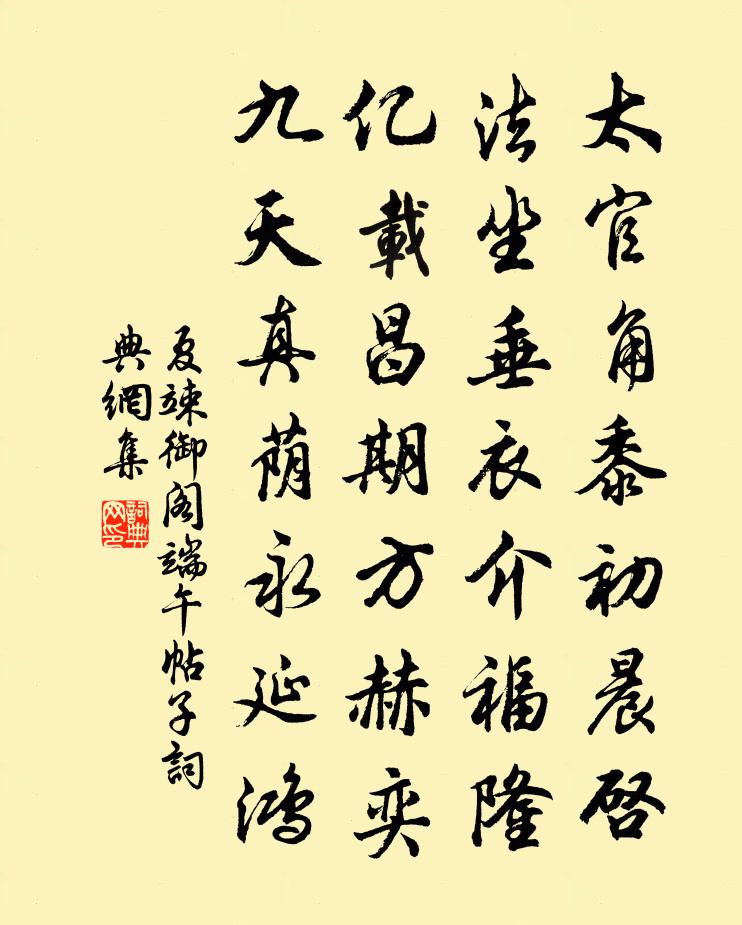 太官角黍初晨啓
法坐垂衣介福隆
亿載昌期方赫奕
九天真荫永延鴻
夏竦御阁端午帖子詞
典網集
詞典网印